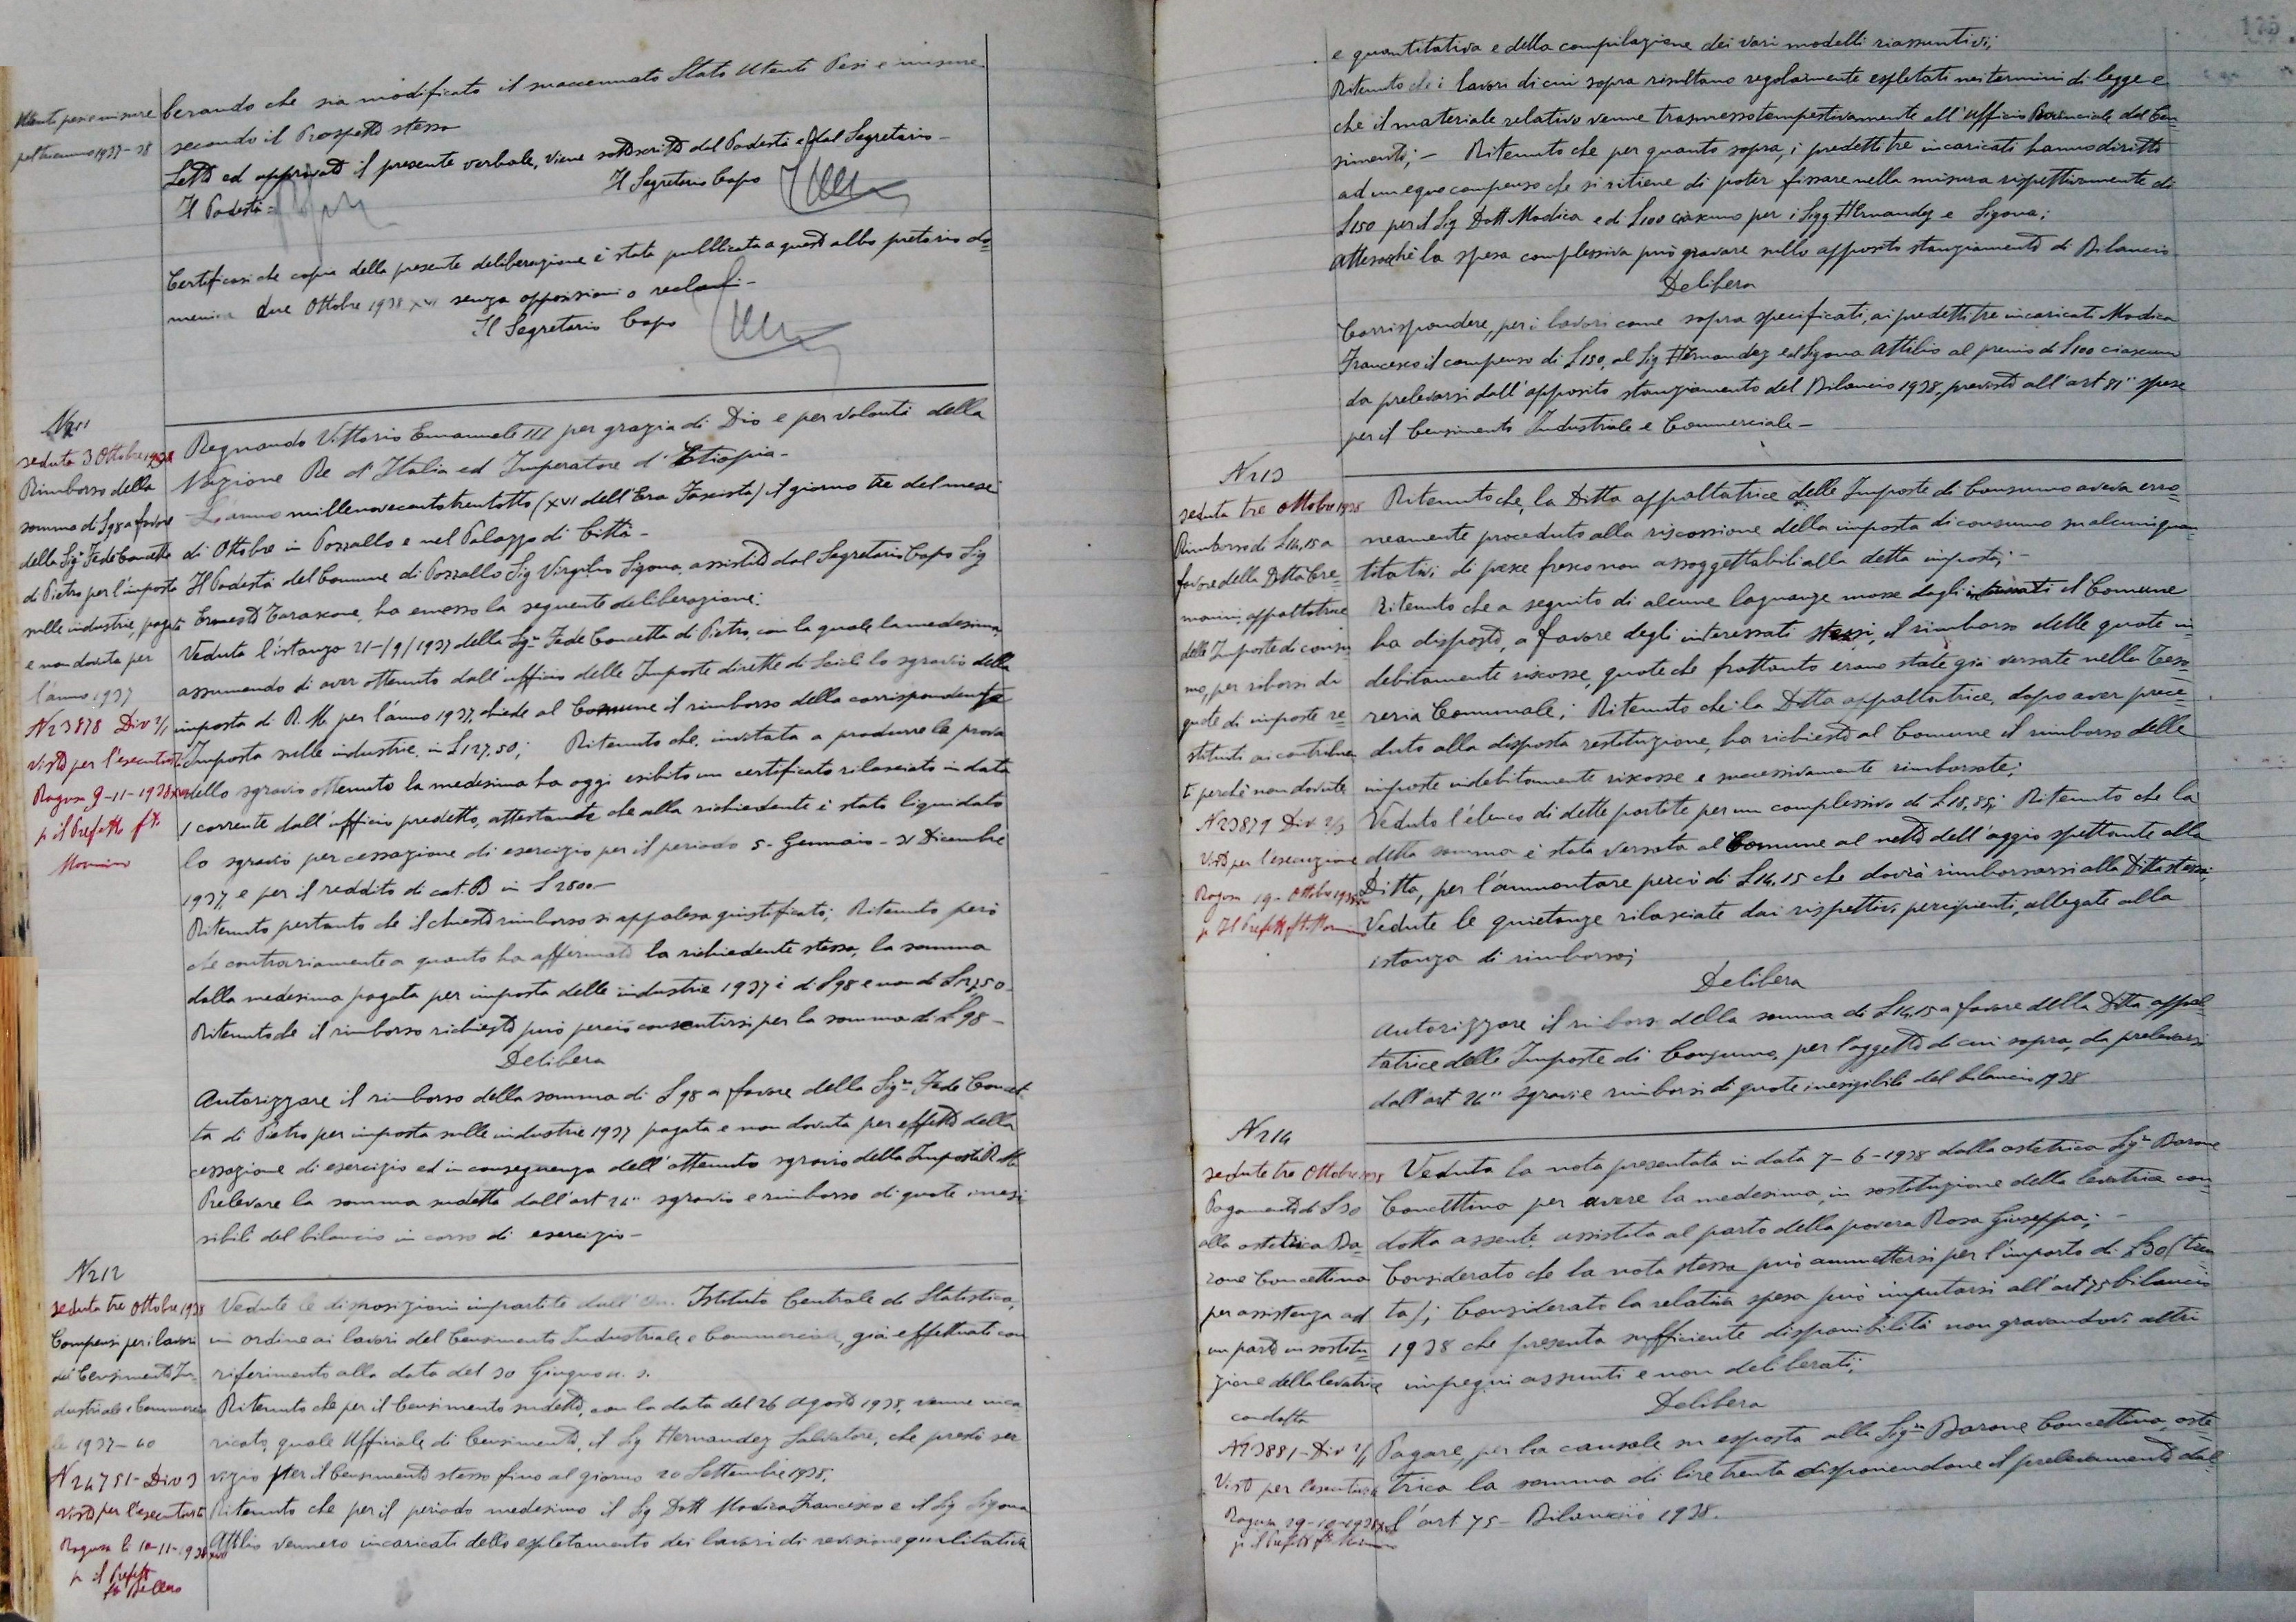 Utenti pesi e misure
pel biennio 1937-38
berando che sia modificato il suaccennato Stato Utenti Pesi e misure
secondo il Prospetto stesso
Letto ed approvato il presente verbale, viene sottoscritto dal Podestà e dal Segretario -
Il Podestà - Il Segretario Capo
Certificasi che copia della presente deliberazione è stata pubblicata a questo albo pretorio do=
menica due Ottobre 1938 XVI senza opposizioni o reclami -
Il Segretario Capo
N 211
seduta 3 Ottobre 1938
Rimborso della
somma di L 98 a favore
della Sigra Fede Concetta
di Pietro per l'imposta
sulle industrie, pagata
e non dovuta per
l'anno 1937
N 23878 Div 2/1
Visto per l'esecutorietà
Ragusa 9-11-1938 XVII
p il Prefetto fto
Regnando Vittorio Emanuele III per grazia di Dio e per volontà della
Nazione Re d'Italia ed Imperatore d'Etiopia -
L'anno millenovecentotrentotto (XVI dell'Era Fascista) il giorno tre del mese
di Ottobre in Pozzallo e nel Palazzo di Città -
Il Podestà del Comune di Pozzallo Sig Virgilio Sigona, assistito dal Segretario Capo Sig
Ernesto Tarascone, ha emesso la seguente deliberazione:
Veduta l'istanza 21-/9/1937 della Sgra Fede Concetta di Pietro, con la quale la medesima,
assumendo di aver ottenuto dall'ufficio delle Imposte dirette di Scicli lo sgravio della
imposta di R. M. per l'anno 1937, chiede al Comune il rimborso della corrispondente
Imposta sulle industrie in L 127,50; Ritenuto che, invitata a produrre la prova
dello sgravio ottenuto la medesima ha oggi esibito un certificato rilasciato in data
1 corrente dall'ufficio predetto, attestante che alla richiedente è stato liquidato
lo sgravio per cessazione di esercizio per il periodo 5 Gennaio - 31 Dicembre
1937, e per il reddito di cat. B in L 2500 -
Ritenuto pertanto che il chiesto rimborso si appalesa giustificato; Ritenuto però
che contrariamente a quanto ha affermato la richiedente stessa, la somma
dalla medesima pagata per imposta delle industrie 1937 è di L 98 e non di L 127,50 -
Ritenuto che il rimborso richiesto può perciò consentirsi per la somma di L 98 -
Delibera
Autorizzare il rimborso della somma di L 98 a favore della Sigra Fede Concet
ta di Pietro per imposta sulle industrie 1937 pagata e non dovuta per effetto della
cessazione di esercizio ed in conseguenza dell'ottenuto sgravio della Imposta R. M.
Prelevare la somma sudetta dall'art 26" sgravio e rimborso di quote inesi
gibili del bilancio in corso di esercizio -
N 212
seduta tre Ottobre 1938
Compensi per i lavori
del Censimento In=
dustriale e Commercia
le 1937-40
N 24751 - Div 3
Visto per l'esecutorietà
Ragusa li 10-11-1938 XVII
p il Prefetto
Vedute le disposizioni impartite dall' Istituto Centrale di Statistica,
in ordine ai lavori del Censimento Industriale e Commerciale, già effettuati con
riferimento alla data del 30 Giugno u. s.
Ritenuto che per il Censimento sudetto, con la data del 26 Agosto 1938, venne inca
ricato, quale Ufficiale di Censimento, il Sig Hernandez Salvatore, che prestò ser
vizio per il Censimento stesso fino al giorno 20 Settembre 1938;
Ritenuto che per il periodo medesimo il Sig Dott Modica Francesco e il Sig Sigona
Attilio vennero incaricati dello espletamento dei lavori di revisione qualitativa
e quantitativa e della compilazione dei vari modelli riassuntivi;
Ritenuto che i lavori di cui sopra risultano regolarmente espletati nei termini di legge e
che il materiale relativo venne trasmesso tempestivamente all'ufficio Provinciale del Cen=
simento; - Ritenuto che per quanto sopra, i predetti tre incaricati hanno diritto
ad un equo compenso che si ritiene di poter fissare nella misura rispettivamente di
L 150 per il Sig Dott Modica e di L 100 ciascuno per i Sigg Hernandez e Sigona;
Attesochè la spesa complessiva può gravare sullo apposito stanziamento di Bilancio
Delibera
Corrispondere, per i lavori come sopra specificati, ai predetti tre incaricati Modica
Francesco il compenso di L 150, al Sig Hernandez ed Sigona Attilio al premio di L 100 ciascuno
da prelevarsi dall'apposito stanziamento del Bilancio 1938, previsto all'art 81" spese
per il Censimento Industriale e Commerciale -
N 213
seduta tre Ottobre 1938
Rimborso di L 14,15 a
favore della Ditta
appaltatrice
delle Imposte di consu
mo, per rimborsi di
quote di imposte re=
stituite ai contribuen
ti perchè non dovute
N 23879 Div 2/3
Visto per l'esecuzione
Ragusa 19 - Ottobre 1938
p Il Prefetto
Ritenuto che, la Ditta appaltatrice delle Imposte di Consumo aveva erro=
neamente proceduto alla riscossione della imposta di consumo su alcuni quan=
titativi di pesce fresco non assoggettabili alla detta imposta; -
Ritenuto che a seguito di alcune lagnanze mosse dagli interessati il Comune
ha disposto, a favore degli interessati stessi, il rimborso delle quote in=
debitamente riscosse, quote che frattanto erano state già versate nella Teso=
reria Comunale; Ritenuto che la Ditta appaltatrice, dopo aver proce=
duto alla disposta restituzione, ha richiesto al Comune il rimborso delle
imposte indebitamente riscosse e successivamente rimborsate;
Veduto l'elenco di dette partite per un complessivo di L 18,85; Ritenuto che la
detta somma è stata versata al Comune al netto dell'aggio spettante alla
Ditta, per l'ammontare perciò di L 14,15 che dovrà rimborsarsi alla Ditta stessa;
Vedute le quietanze rilasciate dai rispettivi percipienti, allegate alla
istanza di rimborso;
Delibera
Autorizzare il rimborso della somma di L 14,15 a favore della Ditta appal=
tatrice delle Imposte di Consumo, per l'oggetto di cui sopra, da prelevarsi
dall'art 26" sgravi e rimborsi di quote inesigibili del bilancio 1938
N 214
seduta tre Ottobre 1938
Pagamento di L 30
alla ostetrica Ba=
rone Concettina
per assistenza ad
un parto in sostitu=
zione della levatrice
condotta
N 23881 - Div 2/1
Visto per l'esecutorietà
Ragusa 29-10-1938 XVI
p il Prefetto
Veduta la nota presentata in data 7-6-1938 dalla ostetrica Sigra Barone
Concettina per avere la medesima, in sostituzione della levatrice con=
dotta assente, assistita al parto della povera Rosa Giuseppa; -
Considerato che la nota stessa può ammettersi per l'importo di L 30 (tren
ta); Considerato la relativa spesa può imputarsi all'art 75 bilancio
1938 che presenta sufficiente disponibilità non gravandovi altri
impegni assunti e non deliberati;
Delibera
Pagare, per la causale su esposta alla Sigra Barone Concettina oste=
trica la somma di lire trenta disponendone il prelevamento dal=
l'art 75 - Bilancio 1938.